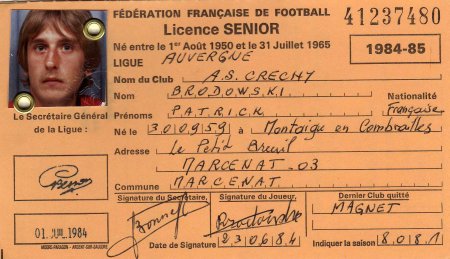 FÉDÉRATION FRANÇAISE DE FOOTBALL 41237480
Licence SENIOR
Né entre le 1er Août 1950 et le 31 Juillet 1965 1984-85
LIGUE AUVERGNE
Nom du Club A.S. CRECHY
Nom BRODOWSKI
Nationalité
Prénoms PATRICK Française
Né le 300959 à Montaigu en Combrailles
Adresse Le Petit Breuil
MARCENAT - 03
Commune MARCENAT
Le Secrétaire Général
de la Ligue :
01 JUL 1984
Signature du Secrétaire,
Signature du Joueur,
Brodowski
Date de Signature 230684
Dernier Club quitté
MAGNET
Indiquer la saison 8081